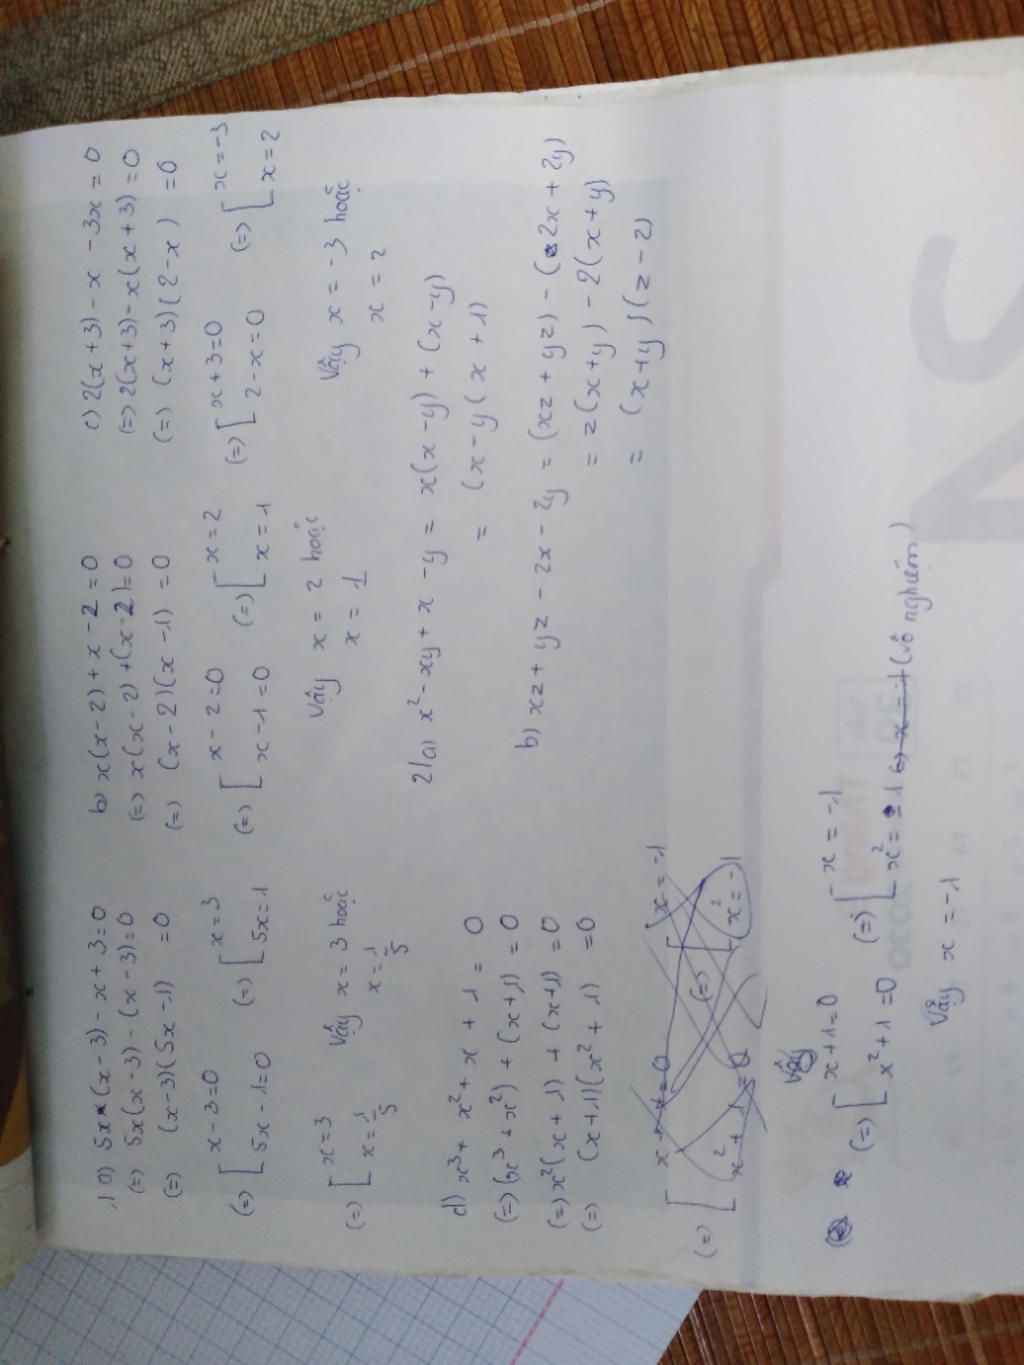 1 a) 5x(x-3) - x + 3 = 0
(=) 5x(x-3) - (x-3) = 0
(=) (x-3)(5x-1) = 0
(=) [ x-3=0
5x-1=0
(=) [ x=3
5x=1
(=) [ x=3
x=1/5
Vậy x = 3 hoặc
x = 1/5
b) x(x-2) + x - 2 = 0
(=) x(x-2) + (x-2) = 0
(=) (x-2)(x-1) = 0
(=) [ x-2=0
x-1=0
(=) [ x=2
x=1
Vậy x = 2 hoặc
x = 1
c) 2(x+3) - x - 3x = 0
(=) 2(x+3) - x(x+3) = 0
(=) (x+3)(2-x) = 0
(=) [ x+3=0
2-x=0
(=) [ x=-3
x=2
Vậy x = -3 hoặc
x = 2
d) x³ + x² + x + 1 = 0
(=) (x³ + x²) + (x+1) = 0
(=) x²(x+1) + (x+1) = 0
(=) (x+1)(x²+1) = 0
(=) [
x²+1=0
(=) [ x=-1
x²=-1
Vậy
(=) [ x+1=0
x²+1=0
(=) [ x=-1
x²=-1 (=) x=-1 (vô nghiệm)
Vậy x = -1
2/a) x² - xy + x - y = x(x-y) + (x-y)
= (x-y(x+1)
b) xz + yz - 2x - 2y = (xz + yz) - (2x + 2y)
= z(x+y) - 2(x+y)
= (x+y)(z-2)